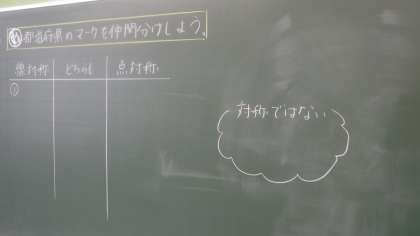 都道府県のマークを仲間分けしよう。
線対称 どちらも 点対称
①
対称ではない